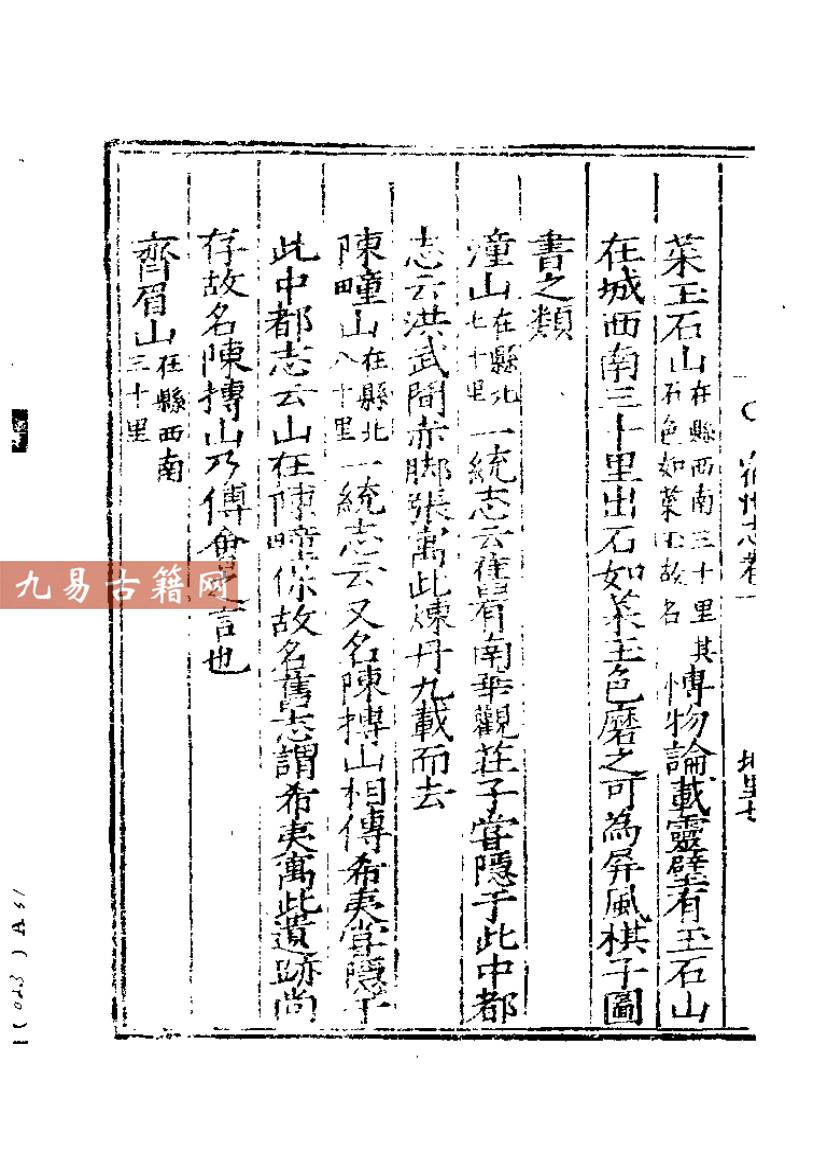 宿州志卷一
地里七
菜玉石山在縣西南三十里其石色如菜玉故名博物論載靈璧有玉石山
在城西南三十里出石如菜玉色磨之可為屏風棋子圖
書之類
潼山在縣北七十里一統志云舊有南華觀莊子嘗隱于此中都
志云洪武間赤脚張寓此煉丹九載而去
陳疃山在縣北八十里一統志云又名陳摶山相傳希夷嘗隱于
此中都志云山在陳疃保故名舊志謂希夷寓此遺跡尚
存故名陳摶山乃傅會之言也
齊眉山在縣西南三十里
九易古籍网